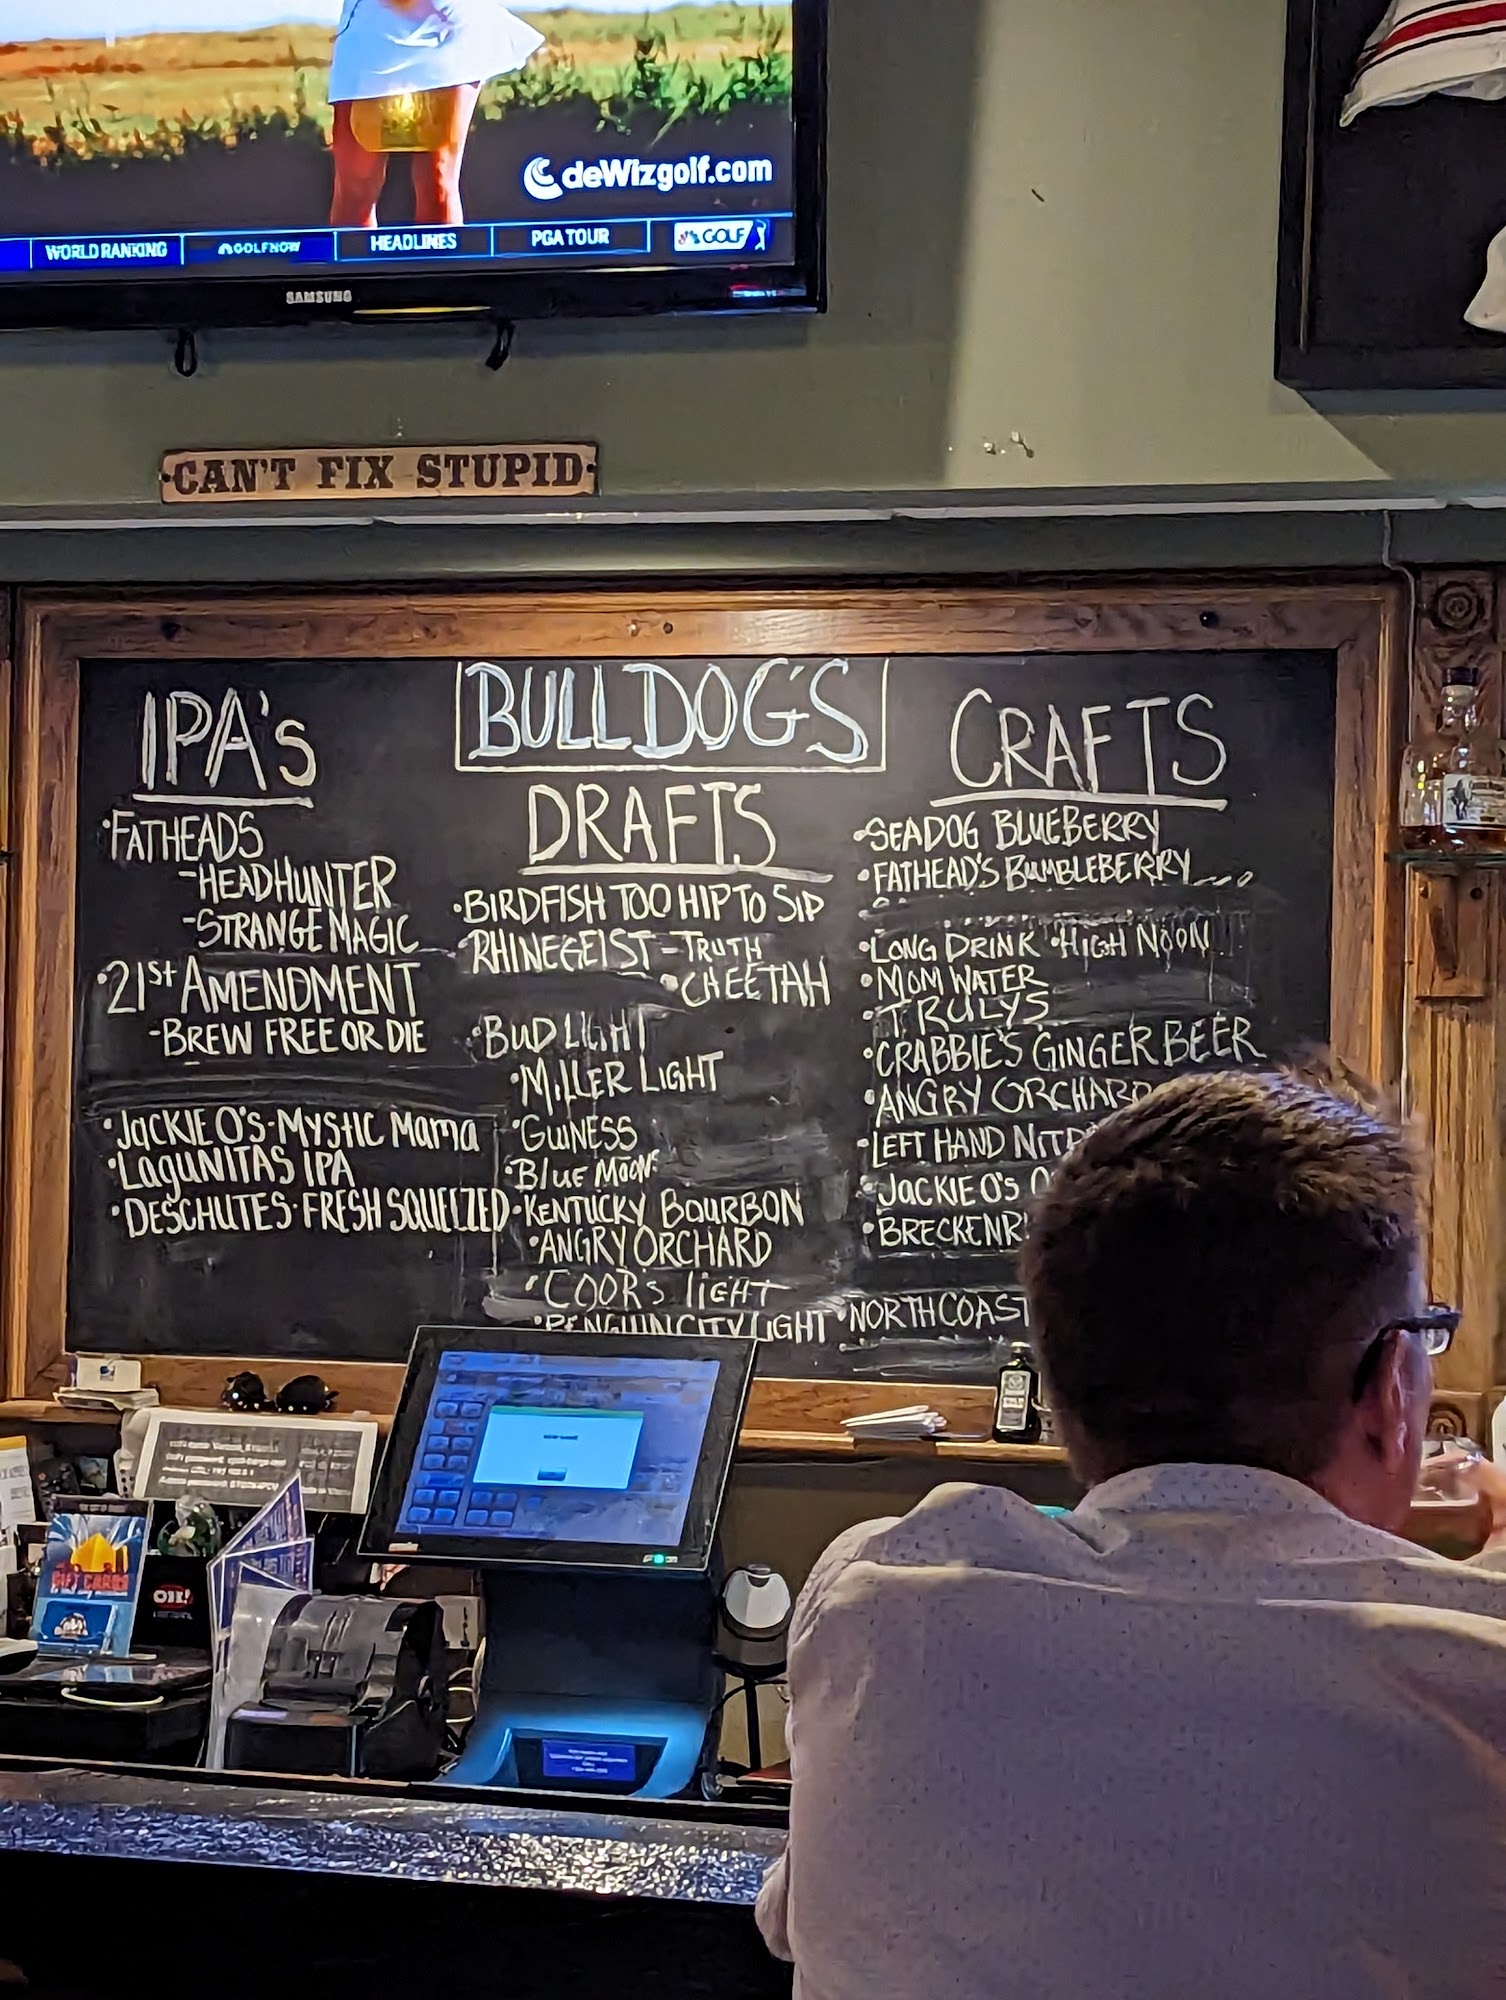 deWizgolf.com
WORLD RANKING
GOLFNOW
HEADLINES
PGA TOUR
GOLF
SAMSUNG
CAN'T FIX STUPID
BULLDOG'S
IPA's
•FATHEADS
-HEADHUNTER
-STRANGE MAGIC
•21st AMENDMENT
-BREW FREE OR DIE
•JACKIE O'S-MYSTIC MAMA
•LAGUNITAS IPA
•DESCHUTES•FRESH SQUEEZED
DRAFTS
•BIRDFISH TOO HIP TO SIP
•RHINEGEIST-TRUTH
•CHEETAH
•BUD LIGHT
•MILLER LIGHT
•GUINESS
•BLUE MOON
•KENTUCKY BOURBON
•ANGRY ORCHARD
•COOR'S LIGHT
•PENGUIN CITY LIGHT
CRAFTS
•SEADOG BLUEBERRY
•FATHEAD'S BUMBLEBERRY
•LONG DRINK •HIGH NOON
•MOM WATER
•TRULYS
•CRABBIE'S GINGER BEER
•ANGRY ORCHARD
•LEFT HAND NITR
•JACKIE O'S
•BRECKENR
•NORTH COAST
GIFT CARDS
OH!